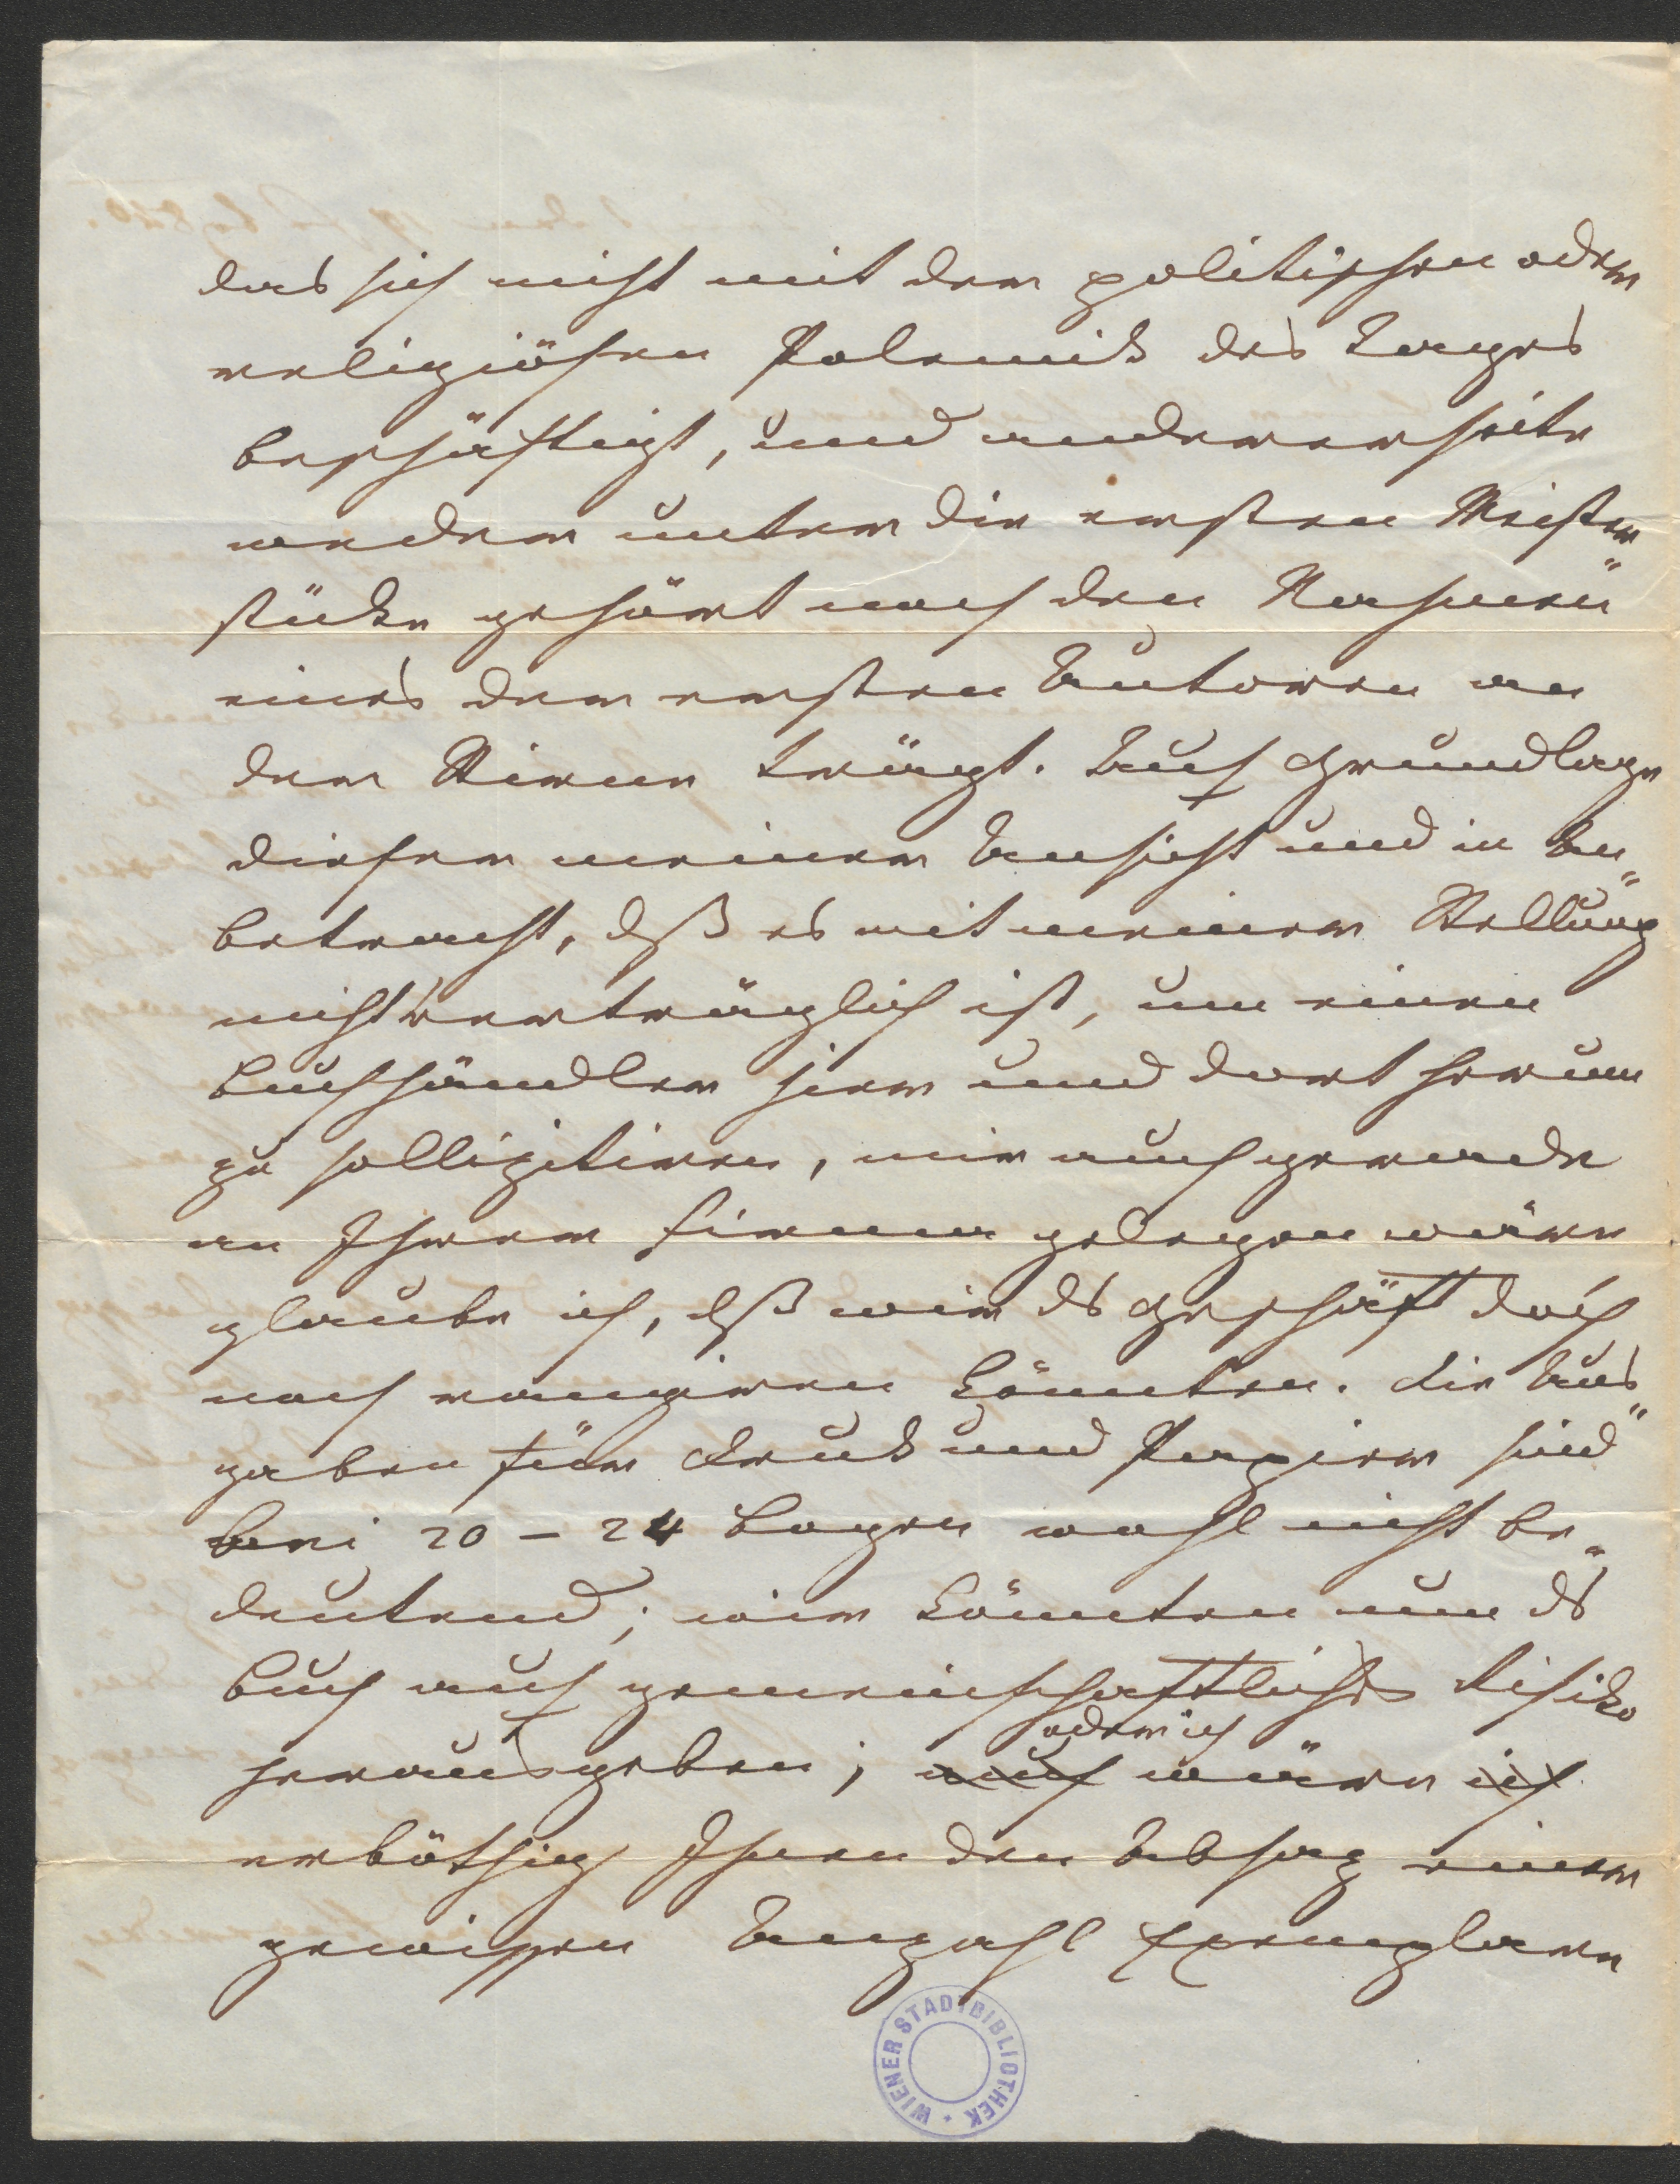 das sich nicht mit der politischen oder
religiösen Polemik des Tages
beschäftigt, und andererseits
weder unter die ersten Meister„
stücke gehört noch den Nahmen
eines der ersten Autoren an
der Stirne trägt. Auf Grundlage
dieser meiner Ansicht und in An„
betracht, dß es mit meiner Stellung
nicht verträglich ist, um einen
Buchhändler hier und dort herum
zu sollizitiren, mir auch gerade
an Ihrer Firma gelegen wäre
glaube ich, dß wir ds Geschäft doch
noch rangiren könnten. Die Aus„
gaben für Druck und Papier sind
bei 20 – 24 Bogen wohl nicht be„
deutend; wir könnten nun ds
Buch auf gemeinschaftliches Risiko
oder ich
herausgeben; auch wäre ich
erböthig Ihnen den Absatz einer
gewissen Anzahl Exemplare
WIENER STADTBIBLIOTHEK